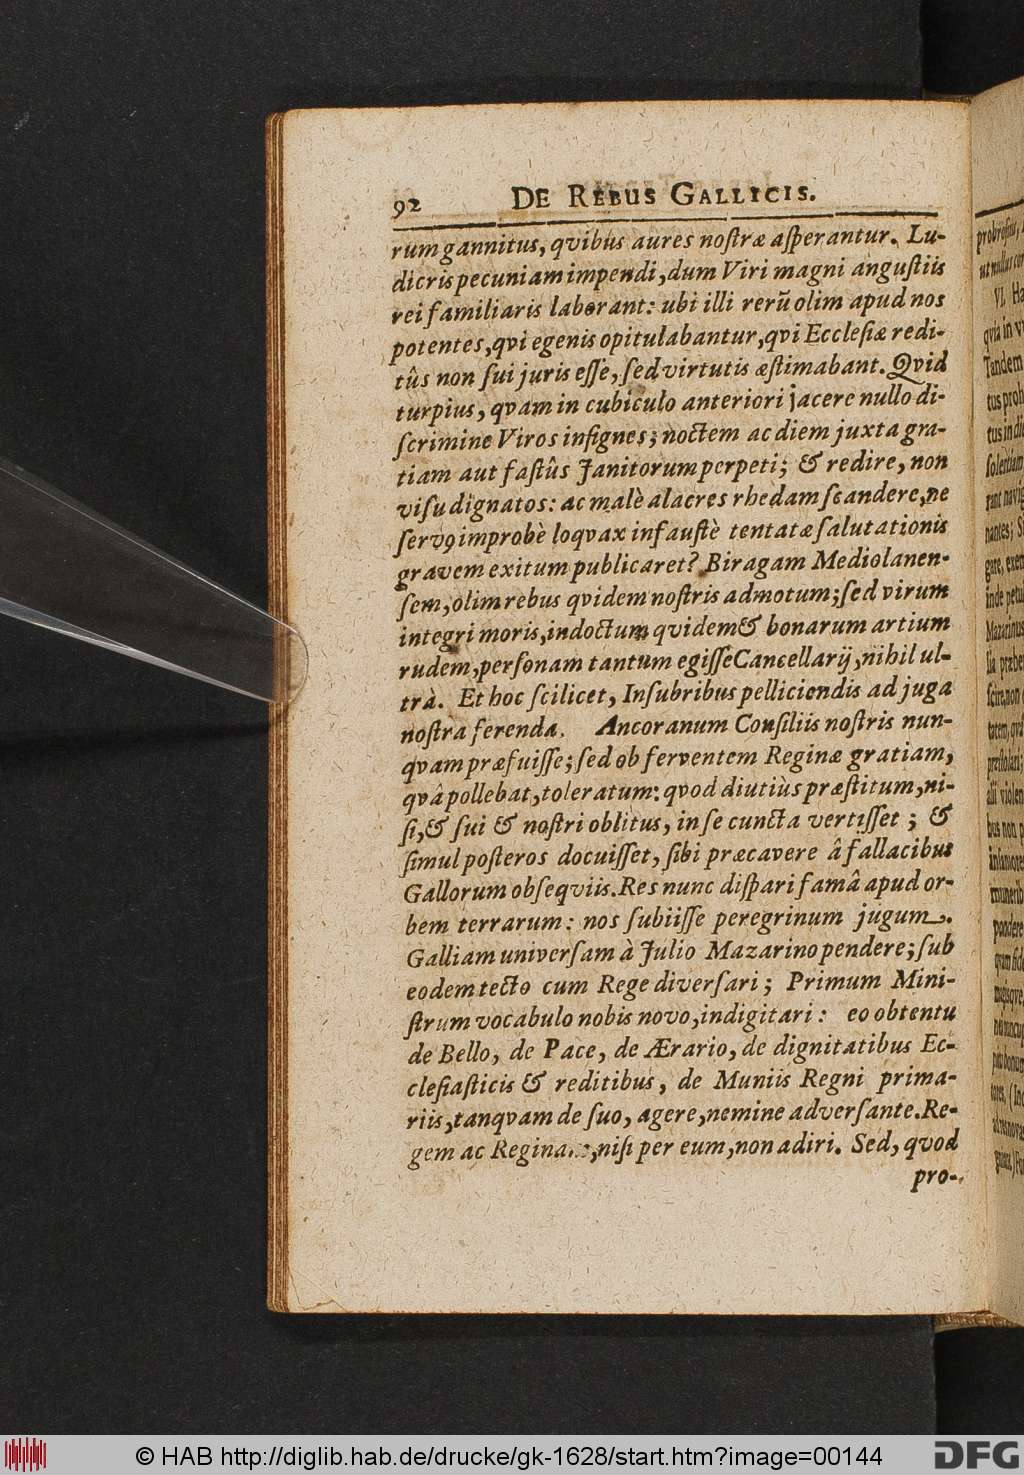 92 DE REBUS GALLICIS.
rum gannitus, qvibus aures noſtræ aſperantur. Lu-
dicris pecuniam impendi, dum Viri magni anguſtiis
rei familiaris laborant: ubi illi rerũ olim apud nos
potentes, qvi egenis opitulabantur, qvi Eccleſiæ redi-
tûs non ſui juris eſſe, ſed virtutis æſtimabant. Qvid
turpius, qvam in cubiculo anteriori jacere nullo di-
ſcrimine Viros inſignes; noctem ac diem juxta gra-
tiam aut faſtûs Janitorum perpeti; & redire, non
viſu dignatos: ac malè alacres rhedam ſcandere, ne
ſervꝰ improbè loqvax infauſtè tentatæ ſalutationis
gravem exitum publicaret? Biragam Mediolanen-
ſem, olim rebus qvidem noſtris admotum; ſed virum
integri moris, indoctum qvidem & bonarum artium
rudem, perſonam tantum egiſſe Cancellarij, nihil ul-
trà. Et hoc ſcilicet, Inſubribus pelliciendis ad juga
noſtra ferenda. Ancoranum Conſiliis noſtris nun-
qvam præfuiſſe; ſed ob ferventem Reginæ gratiam,
qvâ pollebat, toleratum: qvod diutiùs præſtitum, ni-
ſi, & ſui & noſtri oblitus, in ſe cuncta vertiſſet; &
ſimul poſteros docuiſſet, ſibi præcavere â fallacibus
Gallorum obſeqviis. Res nunc diſpari famâ apud or-
bem terrarum: nos ſubiiſſe peregrinum jugum.
Galliam univerſam à Julio Mazarino pendere; ſub
eodem tecto cum Rege diverſari; Primum Mini-
ſtrum vocabulo nobis novo, indigitari: eo obtentu
de Bello, de Pace, de Ærario, de dignitatibus Ec-
cleſiaſticis & reditibus, de Muniis Regni prima-
riis, tanqvam de ſuo, agere, nemine adverſante. Re-
gem ac Reginam, niſi per eum, non adiri. Sed, qvod
pro-
VI. Ha
Tandem
© HAB http://diglib.hab.de/drucke/gk-1628/start.htm?image=00144
DFG